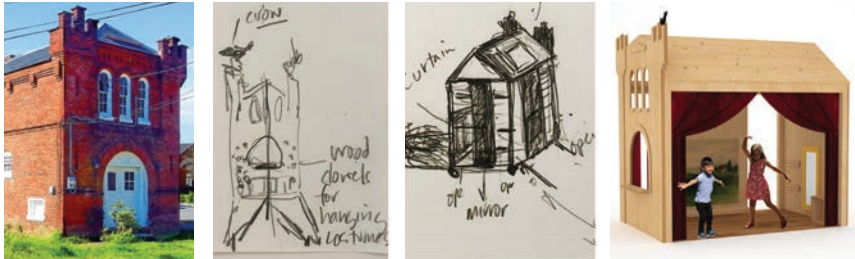 crow
wood
dowels
for
hanging
costumes
curtain
open
ope
op
mirror